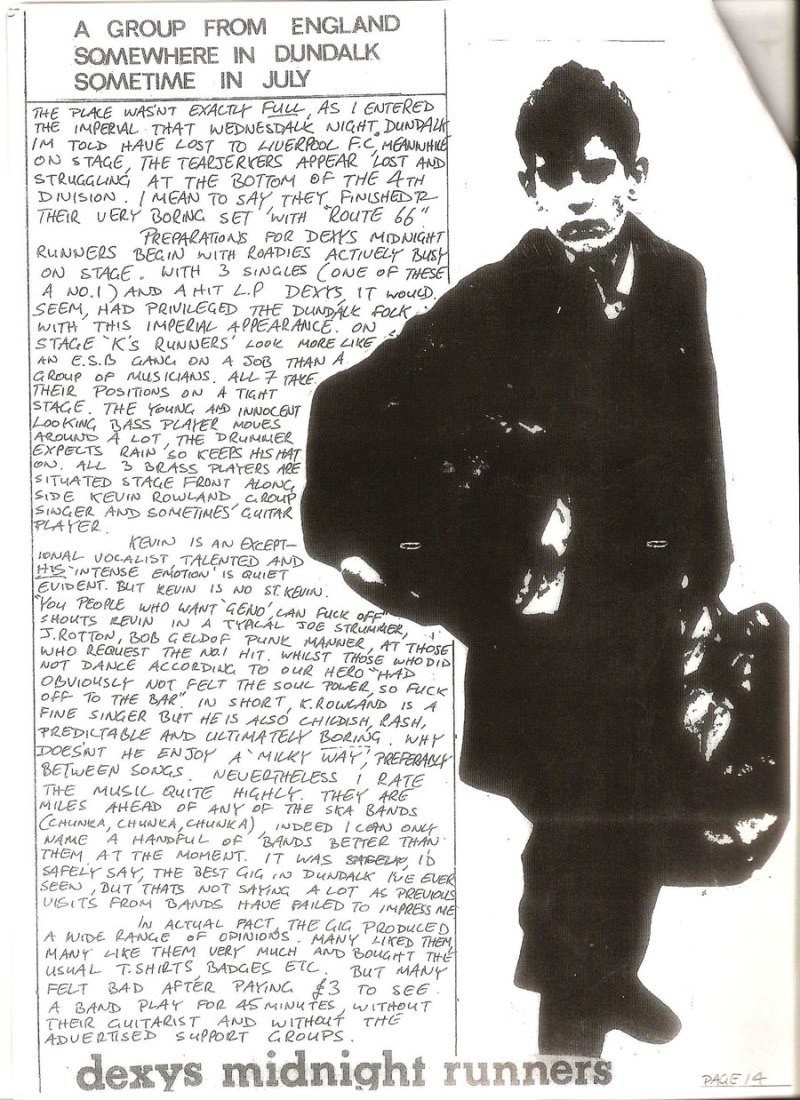 A GROUP FROM ENGLAND
SOMEWHERE IN DUNDALK
SOMETIME IN JULY
THE PLACE WASN'T EXACTLY FULL, AS I ENTERED
THE IMPERIAL THAT WEDNESDALK NIGHT. DUNDALK
I'M TOLD HAVE LOST TO LIVERPOOL F.C, MEANWHILE
ON STAGE, THE TEARJERKERS APPEAR LOST AND
STRUGGLING AT THE BOTTOM OF THE 4TH
DIVISION. I MEAN TO SAY THEY FINISHED
THEIR VERY BORING SET WITH "ROUTE 66"
PREPARATIONS FOR DEXYS MIDNIGHT
RUNNERS BEGIN WITH ROADIES ACTIVELY BUSY
ON STAGE. WITH 3 SINGLES (ONE OF THESE
A NO.1) AND A HIT L.P DEXYS, IT WOULD
SEEM, HAD PRIVILEGED THE DUNDALK FOLK
WITH THIS IMPERIAL APPEARANCE. ON
STAGE 'K's RUNNERS' LOOK MORE LIKE
AN E.S.B GANG ON A JOB THAN A
GROUP OF MUSICIANS. ALL 7 TAKE
THEIR POSITIONS ON A TIGHT
STAGE. THE YOUNG AND INNOCENT
LOOKING BASS PLAYER MOVES
AROUND A LOT, THE DRUMMER
EXPECTS RAIN SO KEEPS HIS HAT
ON. ALL 3 BRASS PLAYERS ARE
SITUATED STAGE FRONT ALONG
SIDE KEVIN ROWLAND, GROUP
SINGER AND SOMETIMES GUITAR
PLAYER.
KEVIN IS AN EXCEPT-
IONAL VOCALIST, TALENTED AND
HIS 'INTENSE EMOTION' IS QUIET
EVIDENT. BUT KEVIN IS NO ST. KEVIN.
"YOU PEOPLE WHO WANT 'GENO', CAN FUCK OFF"
SHOUTS KEVIN IN A TYPICAL JOE STRUMMER,
J. ROTTON, BOB GELDOF PUNK MANNER, AT THOSE
WHO REQUEST THE NO.1 HIT. WHILST THOSE WHO DID
NOT DANCE ACCORDING TO OUR HERO "HAD
OBVIOUSLY NOT FELT THE SOUL POWER, SO FUCK
OFF TO THE BAR". IN SHORT, K. ROWLAND IS A
FINE SINGER BUT HE IS ALSO CHILDISH, RASH,
PREDILTABLE AND ULTIMATELY BORING. WHY
DOESN'T HE ENJOY A 'MILKY WAY', PREFERABLY
BETWEEN SONGS. NEVERTHELESS I RATE
THE MUSIC QUITE HIGHLY. THEY ARE
MILES AHEAD OF ANY OF THE SKA BANDS
(CHUNKA, CHUNKA, CHUNKA), INDEED I CAN ONLY
NAME A HANDFUL OF BANDS BETTER THAN
THEM AT THE MOMENT. IT WAS I'D
SAFELY SAY, THE BEST GIG IN DUNDALK I'VE EVER
SEEN, BUT THATS NOT SAYING A LOT AS PREVIOUS
VISITS FROM BANDS HAVE FAILED TO IMPRESS ME
IN ACTUAL FACT, THE GIG PRODUCED
A WIDE RANGE OF OPINIONS. MANY LIKED THEM,
MANY LIKE THEM VERY MUCH AND BOUGHT THE
USUAL T.SHIRTS, BADGES ETC. BUT MANY
FELT BAD AFTER PAYING £3 TO SEE
A BAND PLAY FOR 45 MINUTES, WITHOUT
THEIR GUITARIST AND WITHOUT THE
ADVERTISED SUPPORT GROUPS.
dexys midnight runners
PAGE 14